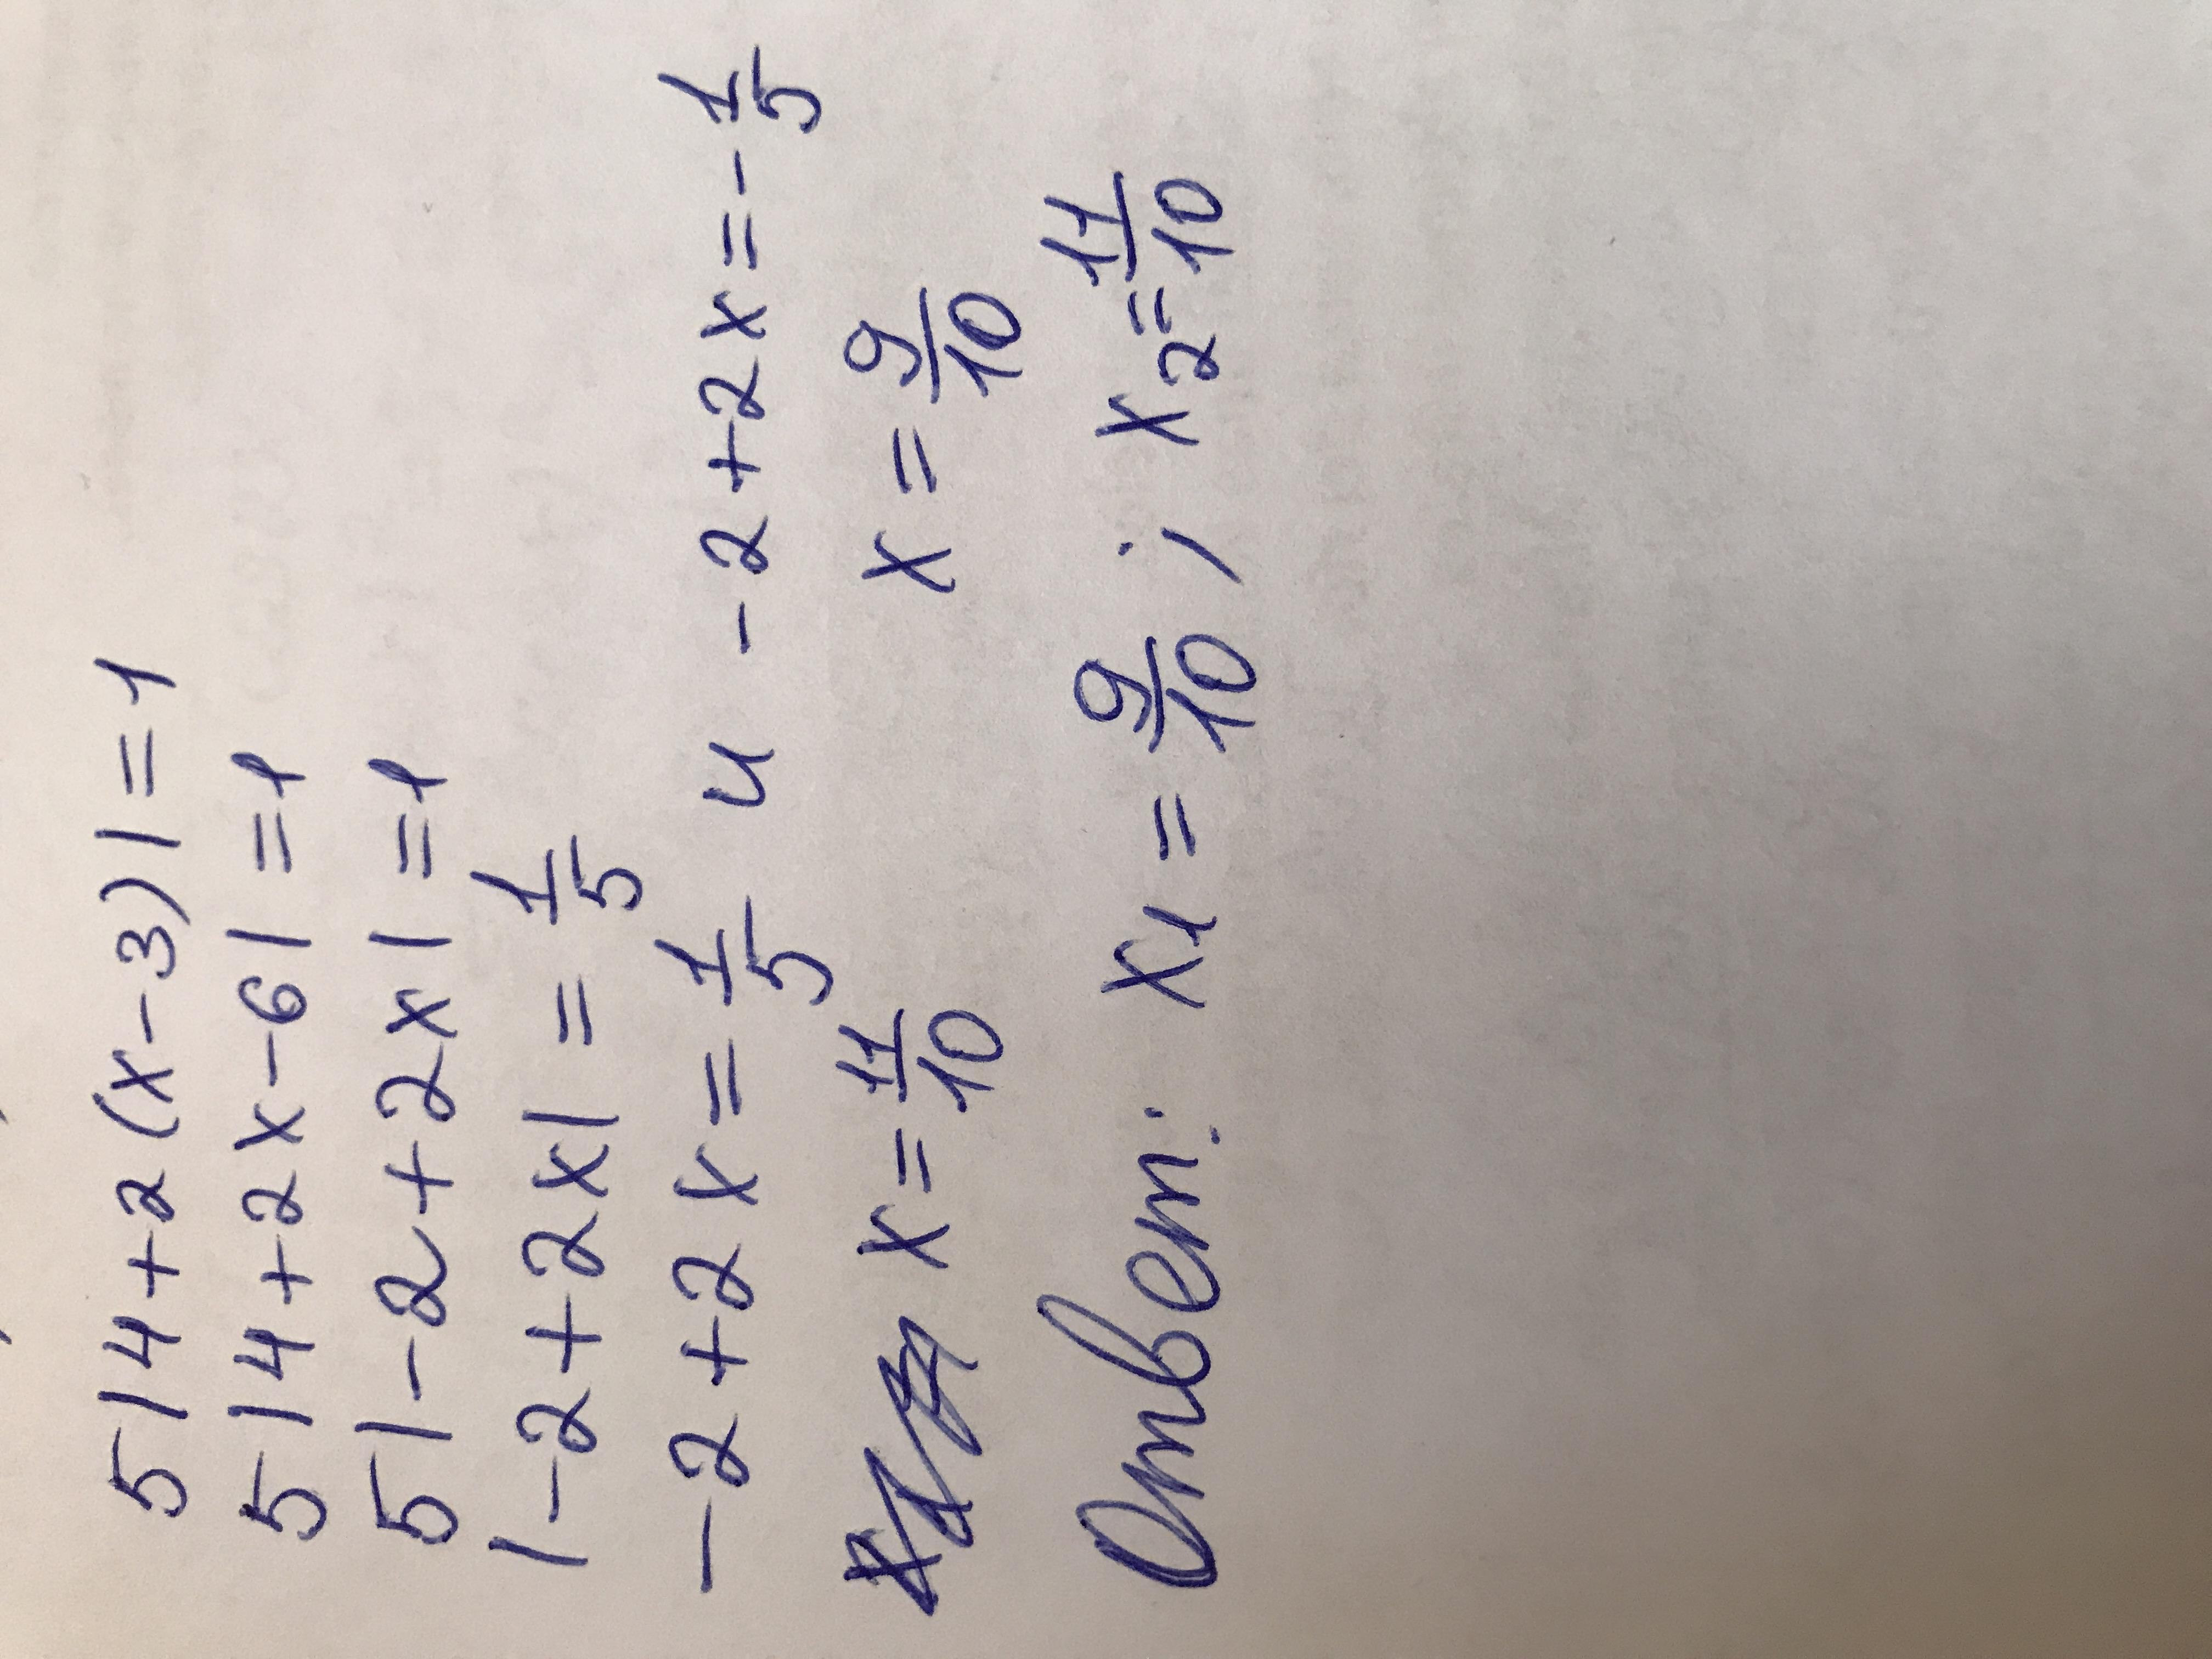 5|4+2(x-3)|=1
5|4+2x-6|=1
5|-2+2x|=1
|-2+2x|=1/5
-2+2x=1/5 и -2+2x=-1/5
x=11/10 x=9/10
Ответ: x1=9/10; x2=11/10